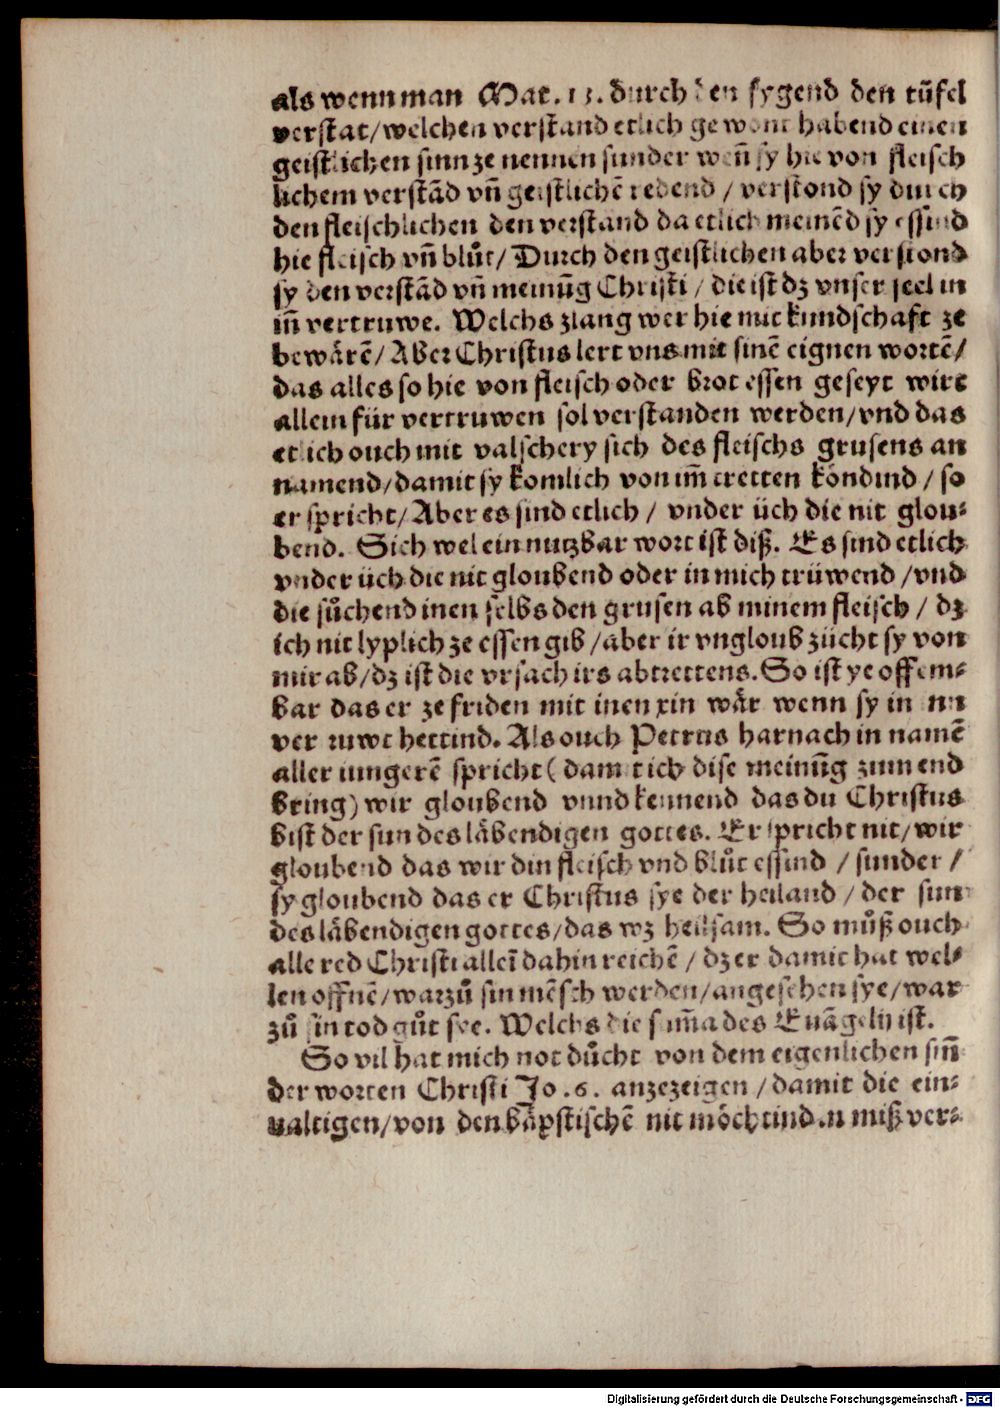 als wenn man Mat. 13. durch den fygend den tüfel
verstat/welchen verstand etlich gewont habend einen
geistlichen sinn ze nennen sunder weñ sy hie von fleisch
lichem verstād vñ geistlichē redend / verstond sy durch
den fleischlichen den verstand da etlich meinēd sy essind
hie fleisch vñ blůt/ Durch den geistlichen aber verstond
sy den verstād vñ meinūg Christi / die ist dz vnser seel in
im̄ vertruwe. Welchs zlang wer hie mit kundschaft ze
bewärē/ Aber Christus lert vns mit sinē eignen wortē/
das alles so hie von fleisch oder brot essen geseyt wirt
allein für vertruwen sol verstanden werden/vnd das
etlich ouch mit valschery sich des fleischs grusens an
namend/damit sy komlich von im̄ tretten köndind / so
er spricht/ Aber es sind etlich / vnder üch die nit glou⸗
bend. Sich wel ein nutzbar wort ist diß. Es sind etlich
vnder üch die nit gloubend oder in mich trüwend /vnd
die sůchend inen selbs den grusen ab minem fleisch / dz
ich nit lyplich ze essen gib /aber ir vngloub zücht sy von
mir ab/dz ist die vrsach irs abtrettens. So ist ye offem⸗
bar das er ze friden mit inen xin wär wenn sy in inn
vertruwt hettind. Als ouch Petrus harnach in namē
aller iungerē spricht (damit ich dise meinūg zum end
bring) wir gloubend vnnd kennend das du Christus
bist der sun des läbendigen gottes. Er spricht nit/wir
gloubend das wir din fleisch vnd blůt essind / sunder /
sy gloubend das er Christus sye der heiland / der sun
des läbendigen gottes/das wz heilsam. So můß ouch
alle red Christi alleī dahin reichē / dz er damit hat wel⸗
len offnē/warzů sin mēsch werden/angesehen sye/war
zů sin tod gůt sye. Welchs die sum̄a des Euāgelij ist.
So vil hat mich not dücht von dem eigenlichen siñ
der worten Christi Jo. 6. anzezeigen /damit die ein⸗
ualtigen/von den bäpstischē nit möchtind in miß ver⸗
Digitalisierung gefördert durch die Deutsche Forschungsgemeinschaft - DFG